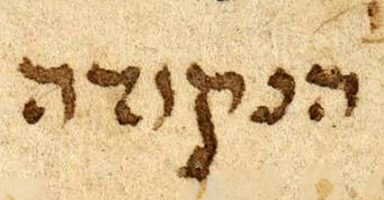 הנקודה